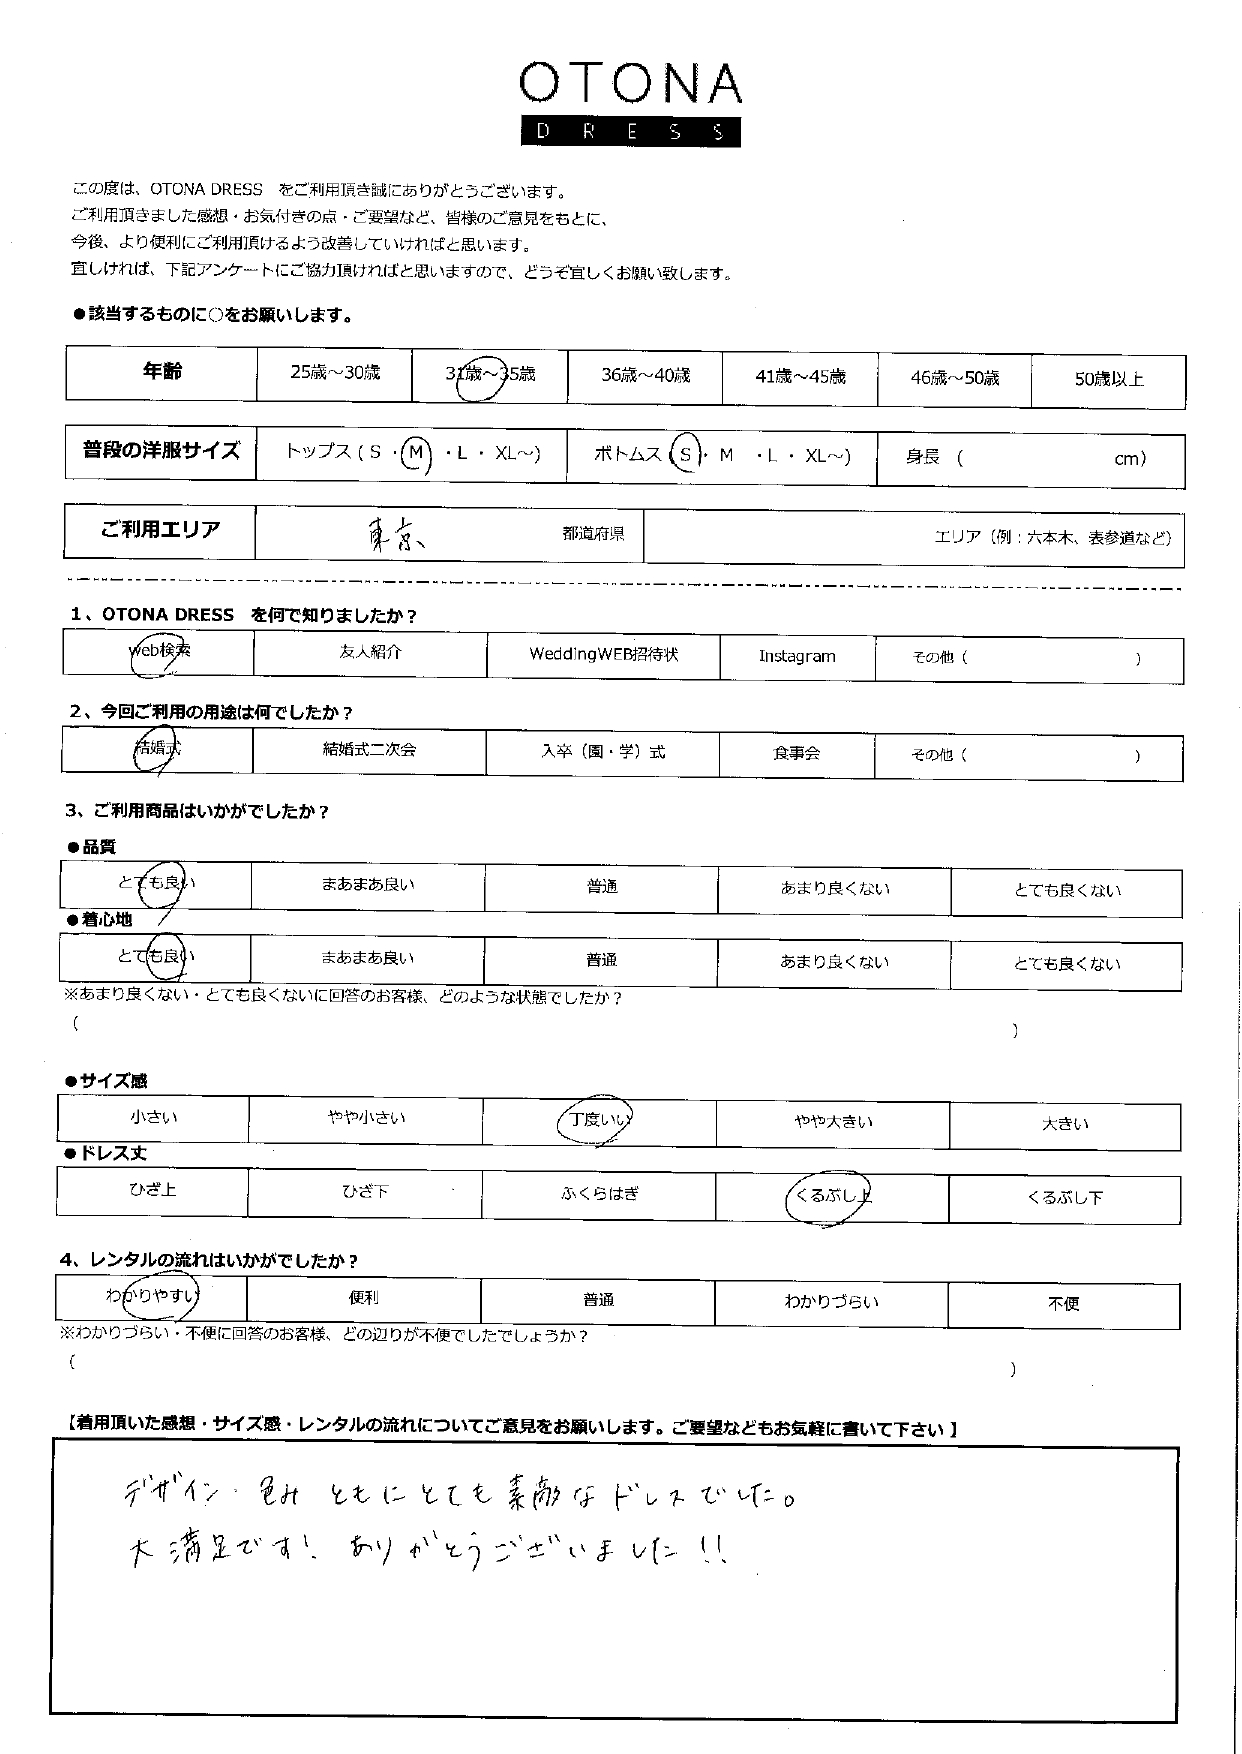 OTONA
DRESS
この度は、OTONA DRESS をご利用頂き誠にありがとうございます。
ご利用頂きました感想・お気付きの点・ご要望など、皆様のご意見をもとに、
今後、より便利にご利用頂けるよう改善していければと思います。
宜しければ、下記アンケートにご協力頂ければと思いますので、どうぞ宜しくお願い致します。
●該当するものに○をお願いします。
年齢 25歳～30歳 31歳～35歳 36歳～40歳 41歳～45歳 46歳～50歳 50歳以上
普段の洋服サイズ トップス ( S ・ M ・ L ・ XL～) ボトムス ( S ・ M ・ L ・ XL～) 身長 ( cm)
ご利用エリア 東京 都道府県 エリア (例：六本木、表参道など)
1、OTONA DRESS を何で知りましたか？
web検索 友人紹介 WeddingWEB招待状 Instagram その他 ( )
2、今回ご利用の用途は何でしたか？
結婚式 結婚式二次会 入卒（園・学）式 食事会 その他 ( )
3、ご利用商品はいかがでしたか？
●品質
とても良い まあまあ良い 普通 あまり良くない とても良くない
●着心地
とても良い まあまあ良い 普通 あまり良くない とても良くない
※あまり良くない・とても良くないに回答のお客様、どのような状態でしたか？
( )
●サイズ感
小さい やや小さい 丁度いい やや大きい 大きい
●ドレス丈
ひざ上 ひざ下 ふくらはぎ くるぶし上 くるぶし下
4、レンタルの流れはいかがでしたか？
わかりやすい 便利 普通 わかりづらい 不便
※わかりづらい・不便に回答のお客様、どの辺りが不便でしたでしょうか？
( )
【着用頂いた感想・サイズ感・レンタルの流れについてご意見をお願いします。ご要望などもお気軽に書いて下さい】
デザイン・色み ともにとても素敵なドレスでした。
大満足です！ ありがとうございました！！